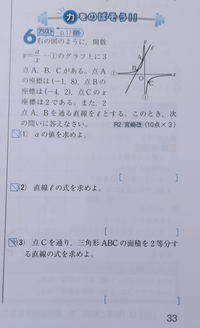 力をのばそう!!
6 右の図のように, 関数
y=a/x …①のグラフ上に3
点A, B, Cがある。点A
の座標は(-1, 8), 点Bの
座標は(-4, 2), 点Cのx
座標は2である。また, 2
点A, Bを通る直線をℓとする。このとき, 次
の問いに答えなさい。 R2 宮崎改 (10点×3)
(1) aの値を求めよ。
[ ]
(2) 直線ℓの式を求めよ。
[ ]
(3) 点Cを通り, 三角形ABCの面積を2等分す
る直線の式を求めよ。
[ ]
33